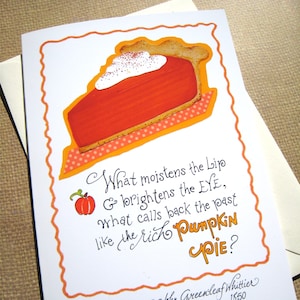 What moistens the Lip
& brightens the EYE,
what calls back the past
like the rich Pumpkin
Pie?
Greenleaf Whittier
1850